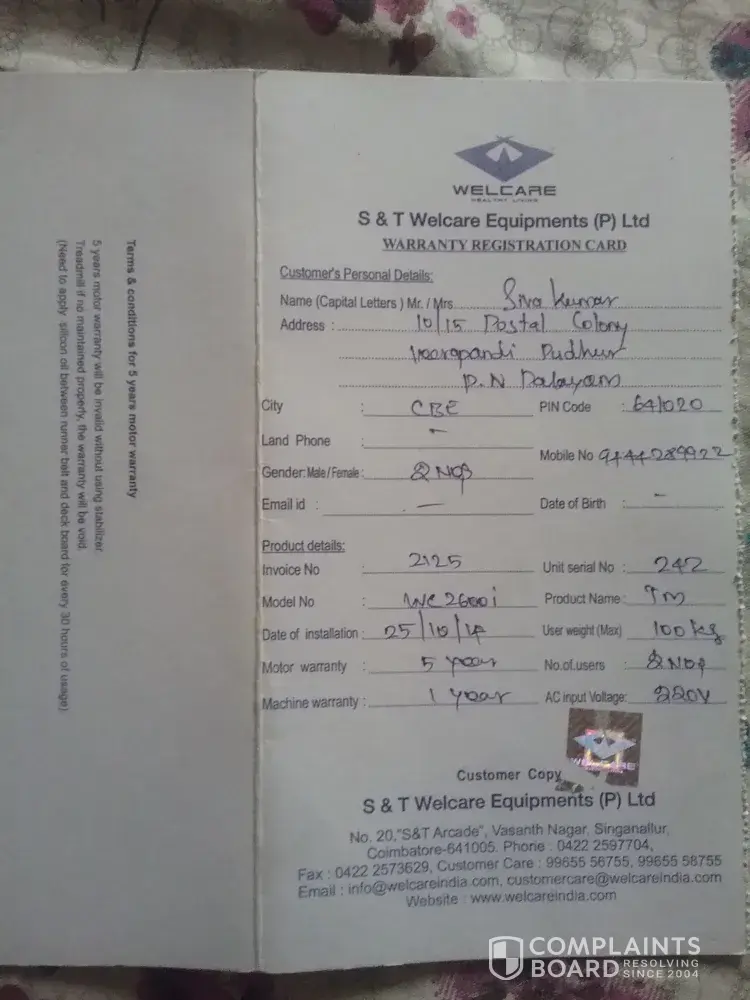 Terms & conditions for 5 years motor warranty
5 years motor warranty will be invalid without using stabilizer
Treadmill if no maintained properly, the warranty will be void.
(Need to apply silicon oil between runner belt and deck board for every 30 hours of usage)
WELCARE
HEALTHY LIVING
S & T Welcare Equipments (P) Ltd
WARRANTY REGISTRATION CARD
Customer's Personal Details:
Name (Capital Letters) Mr. / Mrs Siva Kumar
Address : 10/15 Postal Colony
Veerapandi Pudhur
P.N Palayam
City : CBE PIN Code : 641020
Land Phone : –
Mobile No 9444289922
Gender: Male / Female :
Email id : – Date of Birth : –
Product details:
Invoice No : 2125 Unit serial No : 242
Model No : WC 2600i Product Name : TM
Date of installation : 25/10/14 User weight (Max) : 100 kg
Motor warranty : 5 year No.of.users :
Machine warranty : 1 year AC input Voltage: 220V
WELCARE
Customer Copy
S & T Welcare Equipments (P) Ltd
No. 20,"S&T Arcade", Vasanth Nagar, Singanallur,
Coimbatore-641005. Phone : 0422 2597704,
Fax : 0422 2573629, Customer Care : 99655 56755, 99655 58755
Email : info@welcareindia.com, customercare@welcareindia.com
Website : www.welcareindia.com
COMPLAINTS
BOARD RESOLVING
SINCE 2004